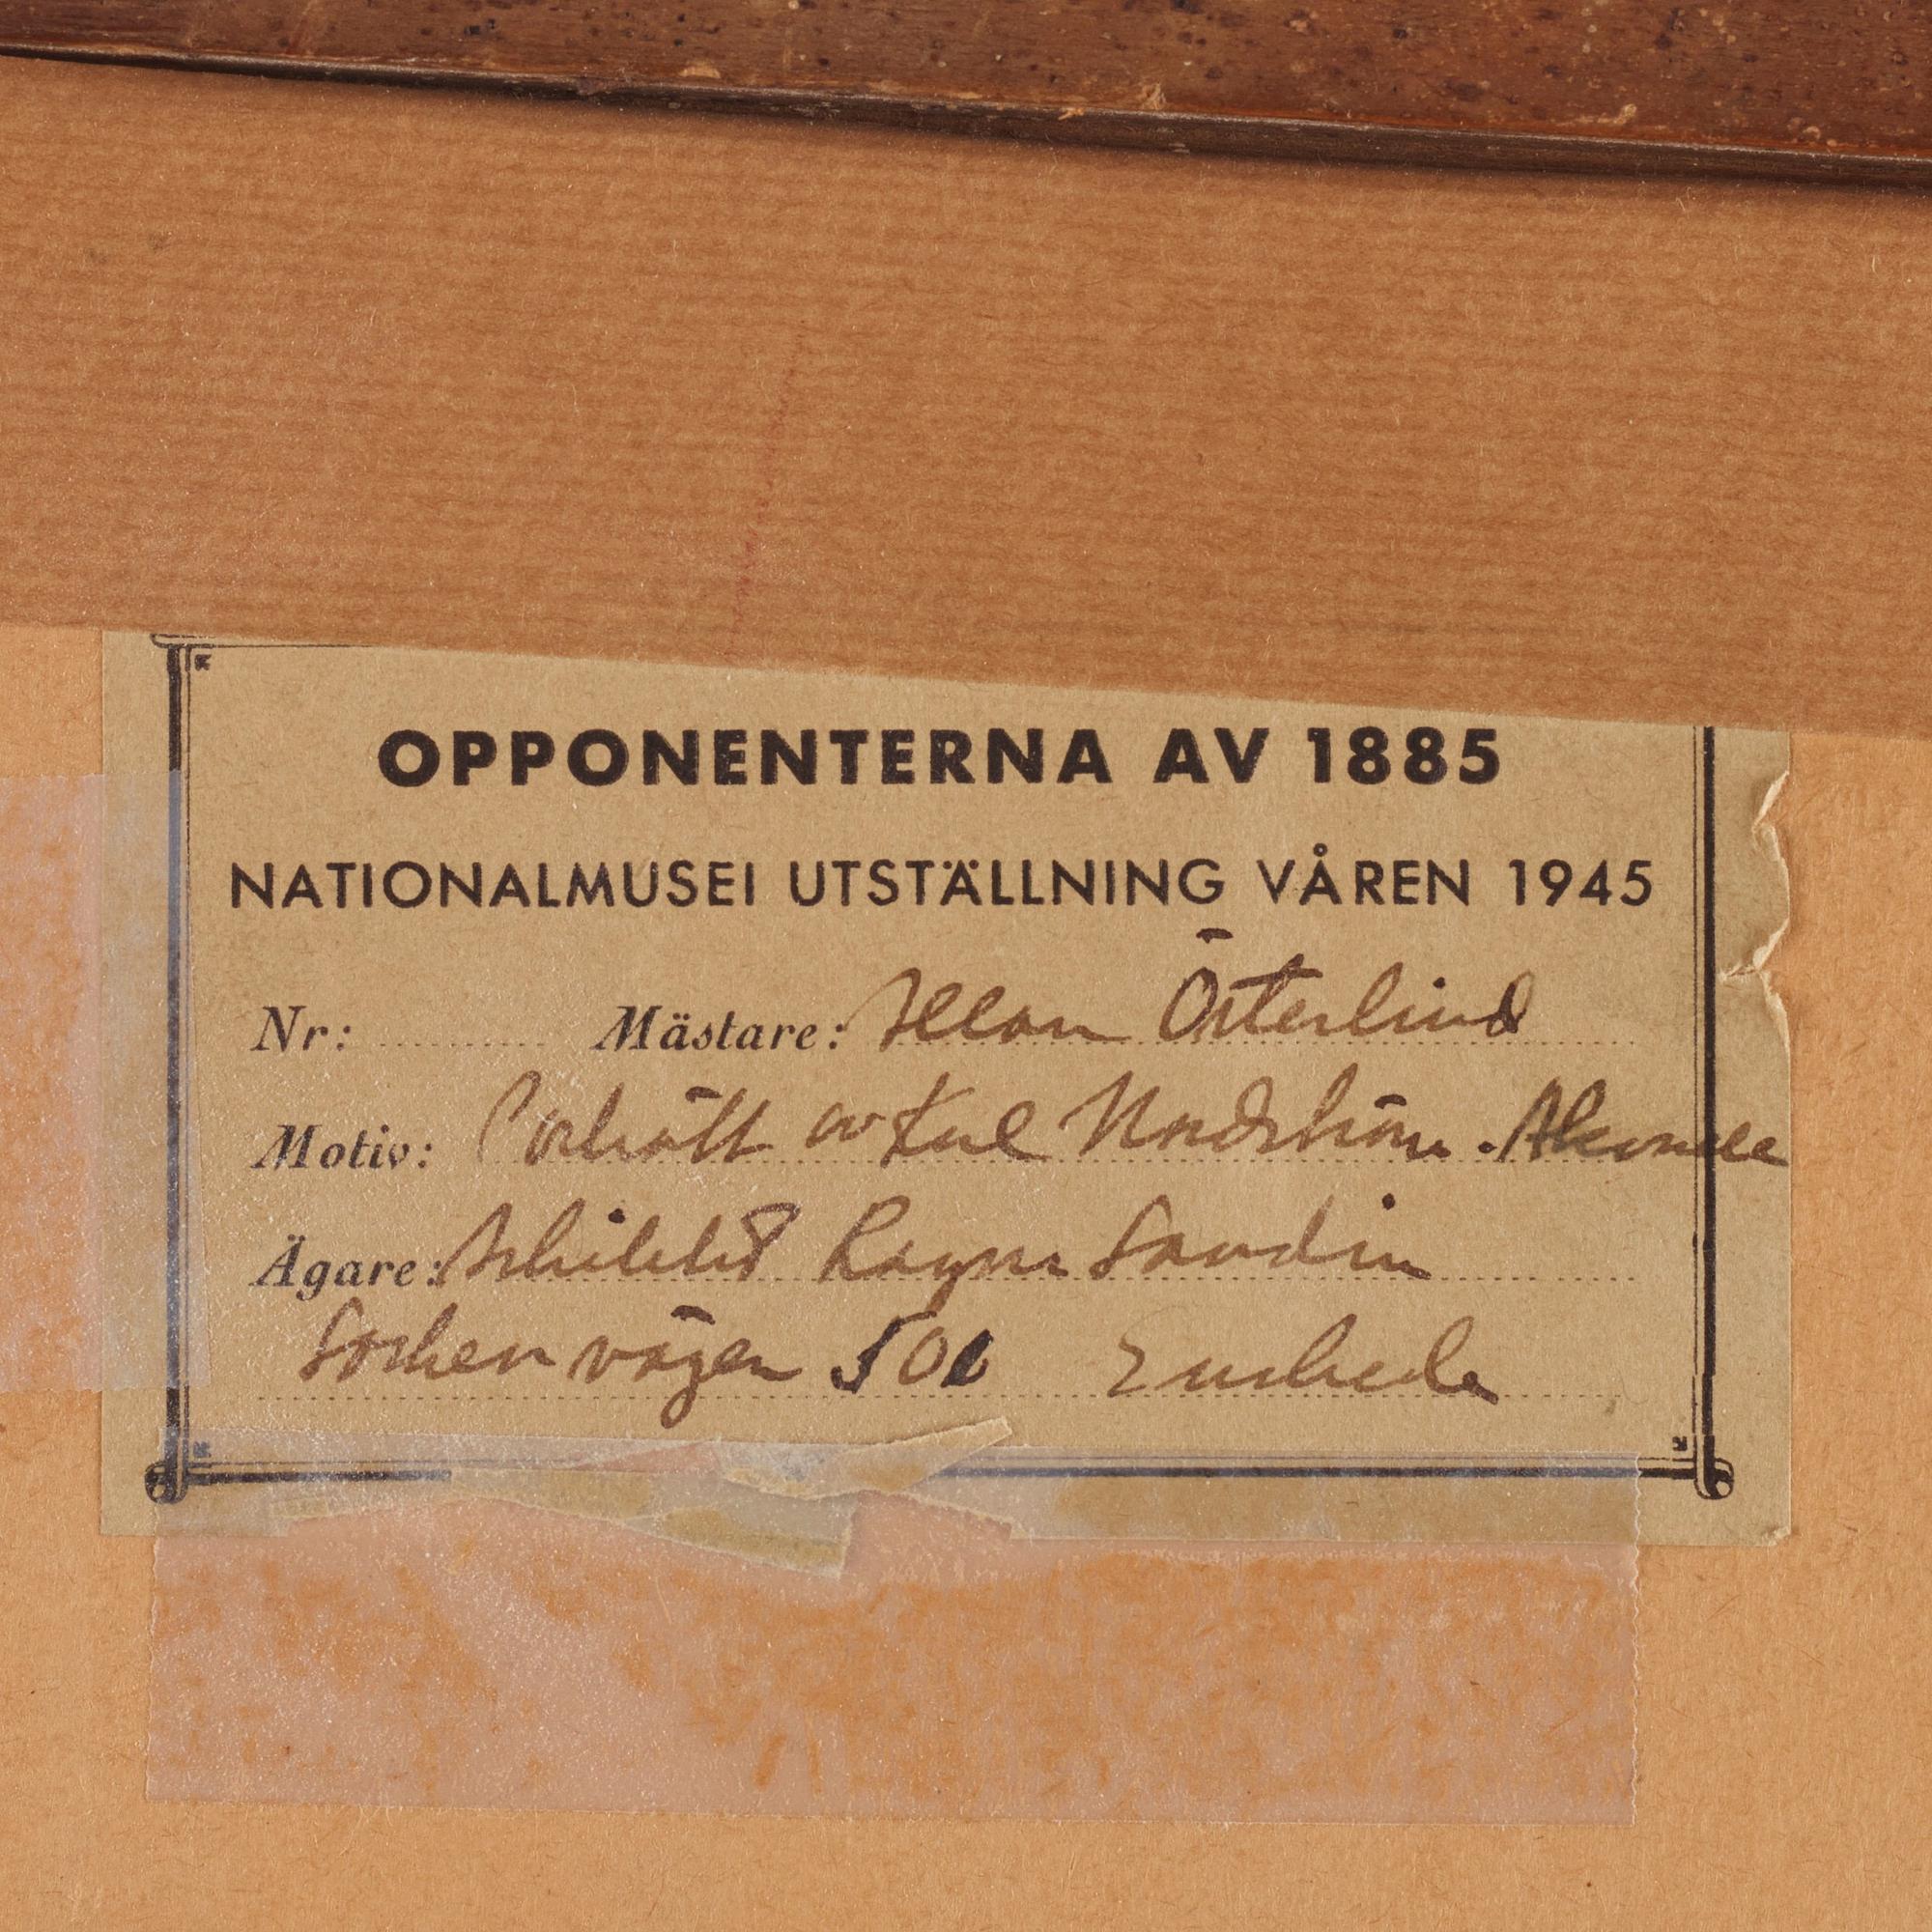 OPPONENTERNA AV 1885
NATIONALMUSEI UTSTÄLLNING VÅREN 1945
Nr: Mästare: Allan Österlind
Motiv: Porträtt av Karl Nordström. Akvarell
Ägare: Arkitekt Ragnar Sandin
Sockenvägen 500 Enskede